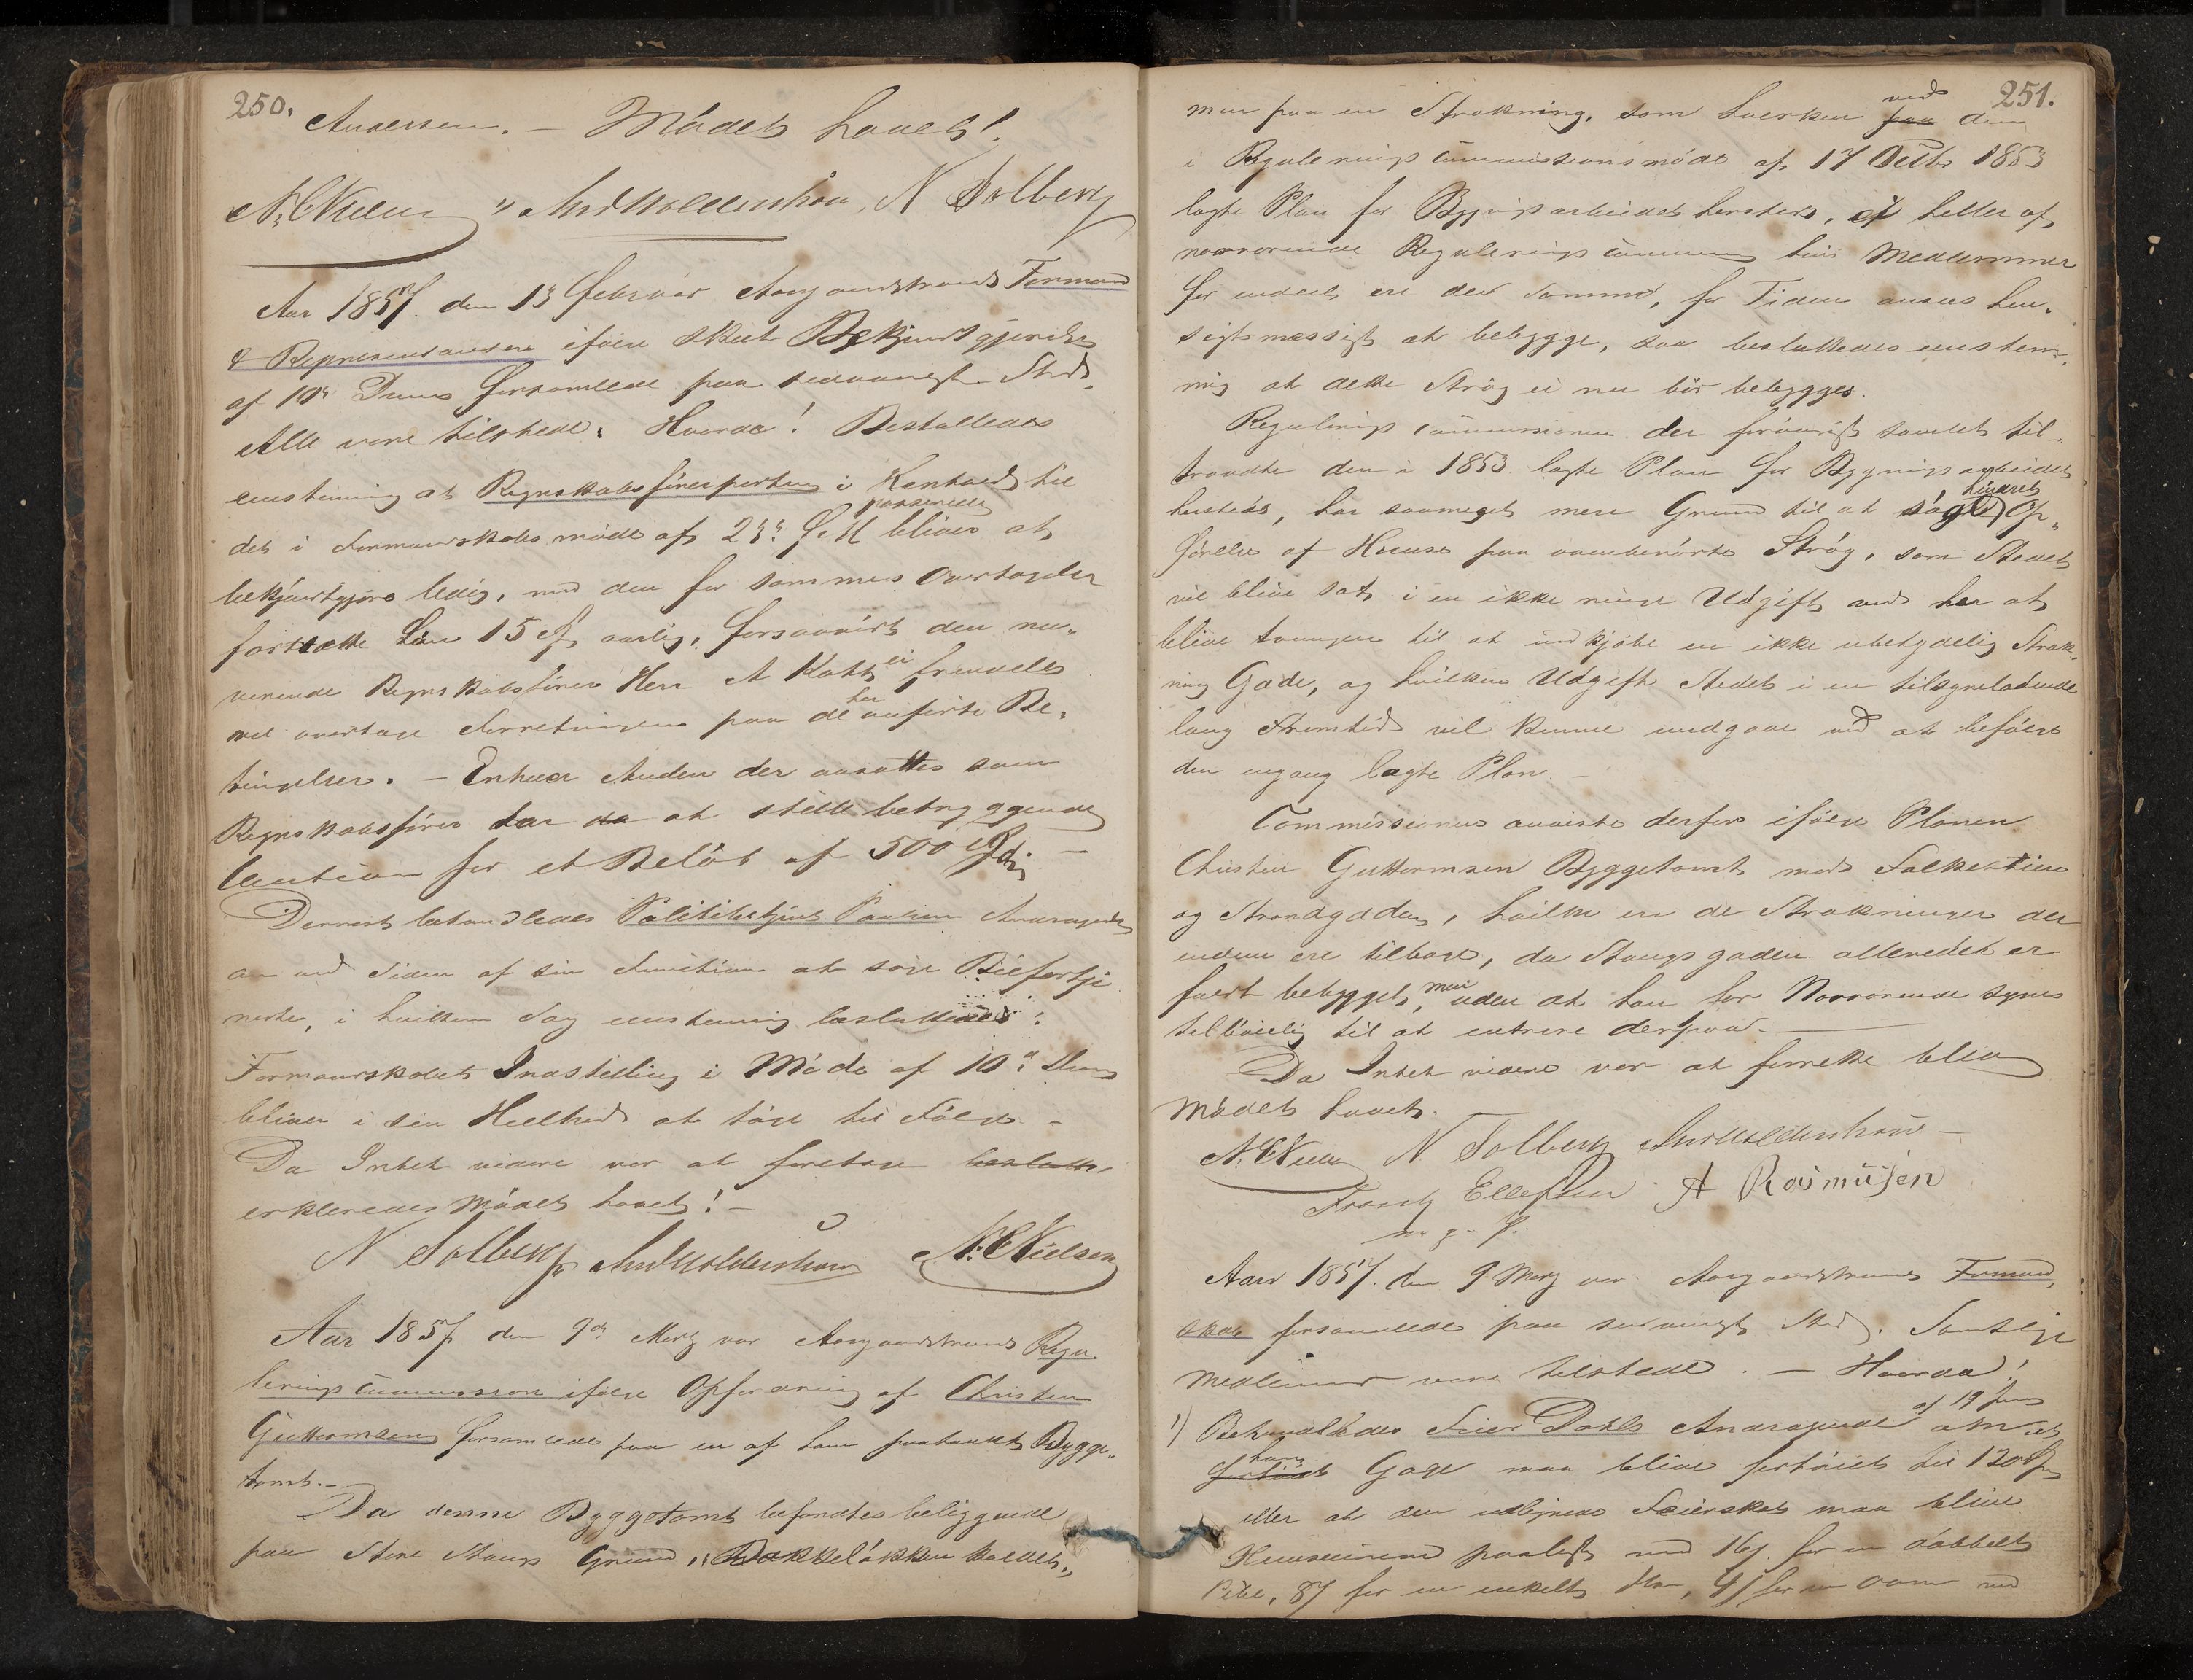 250.
Andersen. – Mödet hævet!
N. C. Nielsen, And Holdenshou, N Solberg
Aar 1857. den 13 Februar Aasgaardstrands Formænd
& Repræsentantere ifölge skeet Bekjendtgjörelse
af 10de Dennes forsamlede paa sædvanligt Sted.
Alle vare tilstede. Hvorda! Besluttedes
eenstemmig at Regnskabsförerposten i Henhold til
det i Formandskabsmöde af passerede bliver at
bekjendtgjöre ledig, med den for sammes Overtagelse
fortsatte Lön 15 aarlig, forsaavidt den nu-
værende Regnskabsförer Herr A ei fremdeles
vil overtage Forretningen paa de her anförte Be-
tingelser. – Enhver Anden der ansættes som
Regnskabsförer har da at stille betryggende
Caution for et Belöb af 500 Spd. –
Dernæst behandledes Politibetjent Paulsens Andragende
om ved Siden af sin Function at söge Biefortje
neste, i hvilken Sag eenstemmig besluttedes:
Formandskabets Indstilling i Möde af 10de Dennes
bliver i sin Heelhed at tage til Fölge –
Da Intet videre var at foretage beslutte
erklæredes Mödet hævet! –
N Solberg, And Holdenshou N. C. Nielsen
Aar 1857 den 9de Martz var Aasgaardstrands Regu-
leringscommission ifölge Opfordring af Christen
Guttormsen forsamlede paa en af ham paatænkt Bygge-
tomt. –
Da denne Byggetomt befandtes beliggende
paa Store Stangs Grund, „Bakkelökken kaldet„
251.
men paa en Strækning, som hverken paa ved den
i Reguleringscommissionsmöde af 17 Octbr 1853
lagte Plan for Bygningsarbeidet hersteds, ei heller af
nærværende Reguleringscommissions Medlemmer
for endeel ere det samme, for Tiden ansees hen-
sigtsmæssigt at bebygge, saa besluttedes eenstem-
mig at dette Strög ei nu bör bebygges.
Reguleringscommissionen der forövrigt samlet til-
traadte den i 1853 lagte Plan for Bygningsarbeidet
hersteds, har saameget mere Grund til at söge hindret Op-
förelse af Huuse paa ovenberörte Strög, som Stedet
vil blive sat i en ikke ringe Udgift ved her at
blive tvungen til at indkjöbe en ikke ubetydelig Stræk-
ning Gade, og hvilken Udgift Stedet i en tilsyneladende
lang Fremtid vil kunne undgaae ved at befölge
den engang lagte Plan. –
Commissionen anviste derfor ifölge Planen
Christen Guttormsen Byggetomt med Falkestien
og Strandgaden, hvilke ere de Strækninger der
endnu ere tilbage, da Stangsgaden allerede er
fuldt bebygget, men uden at han for Nærværende synes
tilböielig til at entrere derpaa. –
Da Intet videre var at forrette blev
Mödet hævet.
N. C. Nielsen N. Solberg And Holdenshou –
Frantz Ellefsen A Rasmusen
m. p. P.
Aar 1857. den 9 Martz var Aasgaardstrands Formand-
skab forsamlede paa sædvanligt Sted. Samtlige
Medlemmer vare tilstede. – Hvorda!
1) Behandledes Feier Dahls Andragende af 19 om at
hans Gage maa blive forhöiet til 120
eller at den Feierskat maa blive
Huuseierne paalagt med 16 s. for en dobbelt
Pibe, 8 s for en enkelt , 4 s for en Ovn med